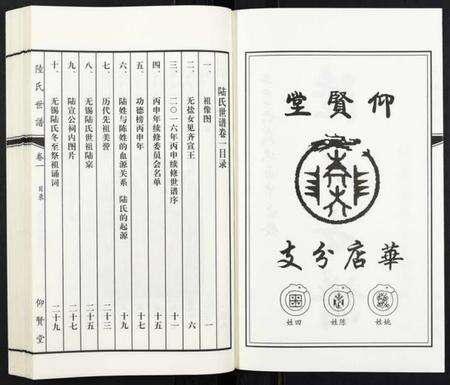 仰賢堂
華店分支
姚姓
陈姓
田姓
陆氏世谱卷一目录
一、祖像图 一
二、无盐女见齐宣王 六
三、二〇一六年丙申续修世谱序 十一
四、丙申年续修委员会名单 十五
五、功德榜丙申年 十七
六、陆姓与陈姓的血源关系 陆氏的起源 十九
七、历代先祖美誉 二十三
八、无锡陆氏世祖陆 二十五
九、陆宣公祠内图片 二十七
十、无锡陆氏冬至祭祖诵词 二十九
陸氏世譜 卷一 目录 仰賢堂